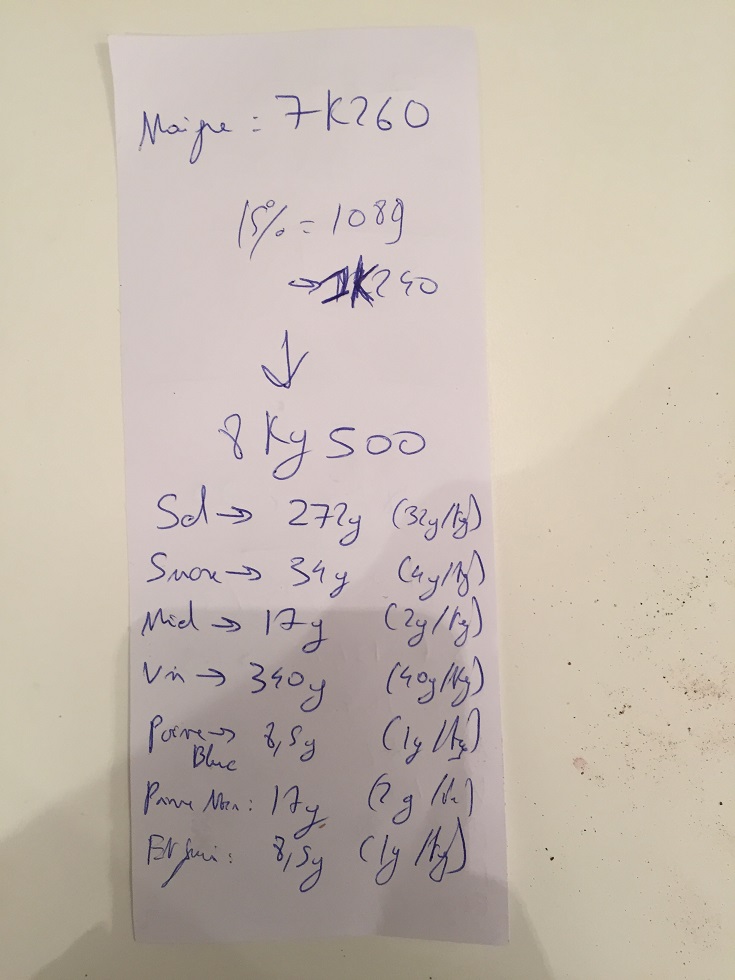 Maigre : 7K260
15% = 1089
→ 1K240
↓
8 Kg 500
Sel → 272g (32g/Kg)
Sucre → 34g (4g/Kg)
Miel → 17g (2g/Kg)
Vin → 340g (40g/Kg)
Poivre → 8,5g (1g/Kg)
Blanc
Poivre Noir : 17g (2g/Kg)
: 8,5g (1g/Kg)